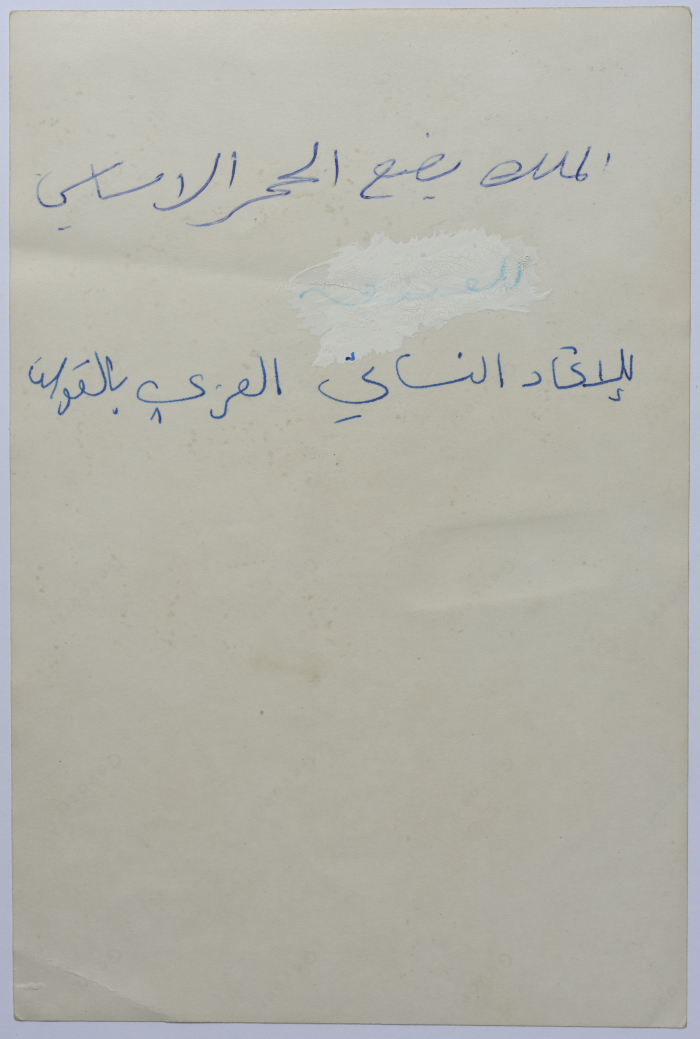 الملك يضع الحجر الاساسي
للاتحاد النسائي العربي بالقدس